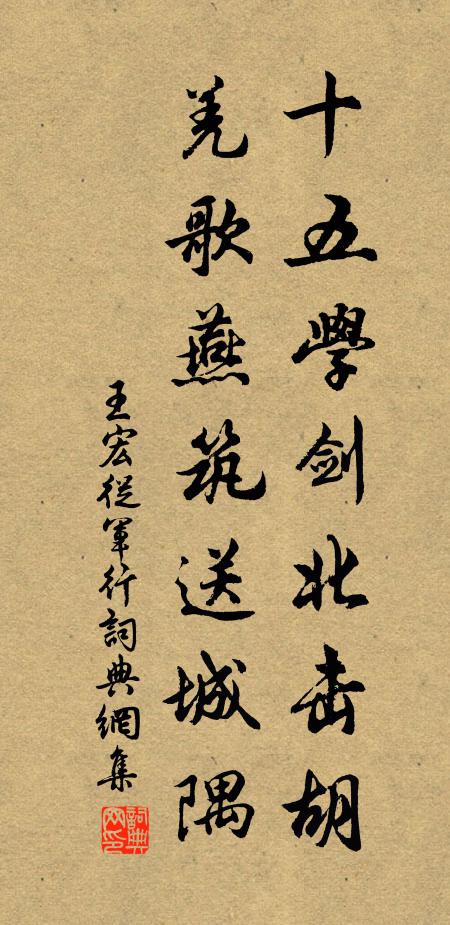 十五學劍北击胡
羌歌燕筑送城隅
王宏從軍行詞典網集
詞典
网印